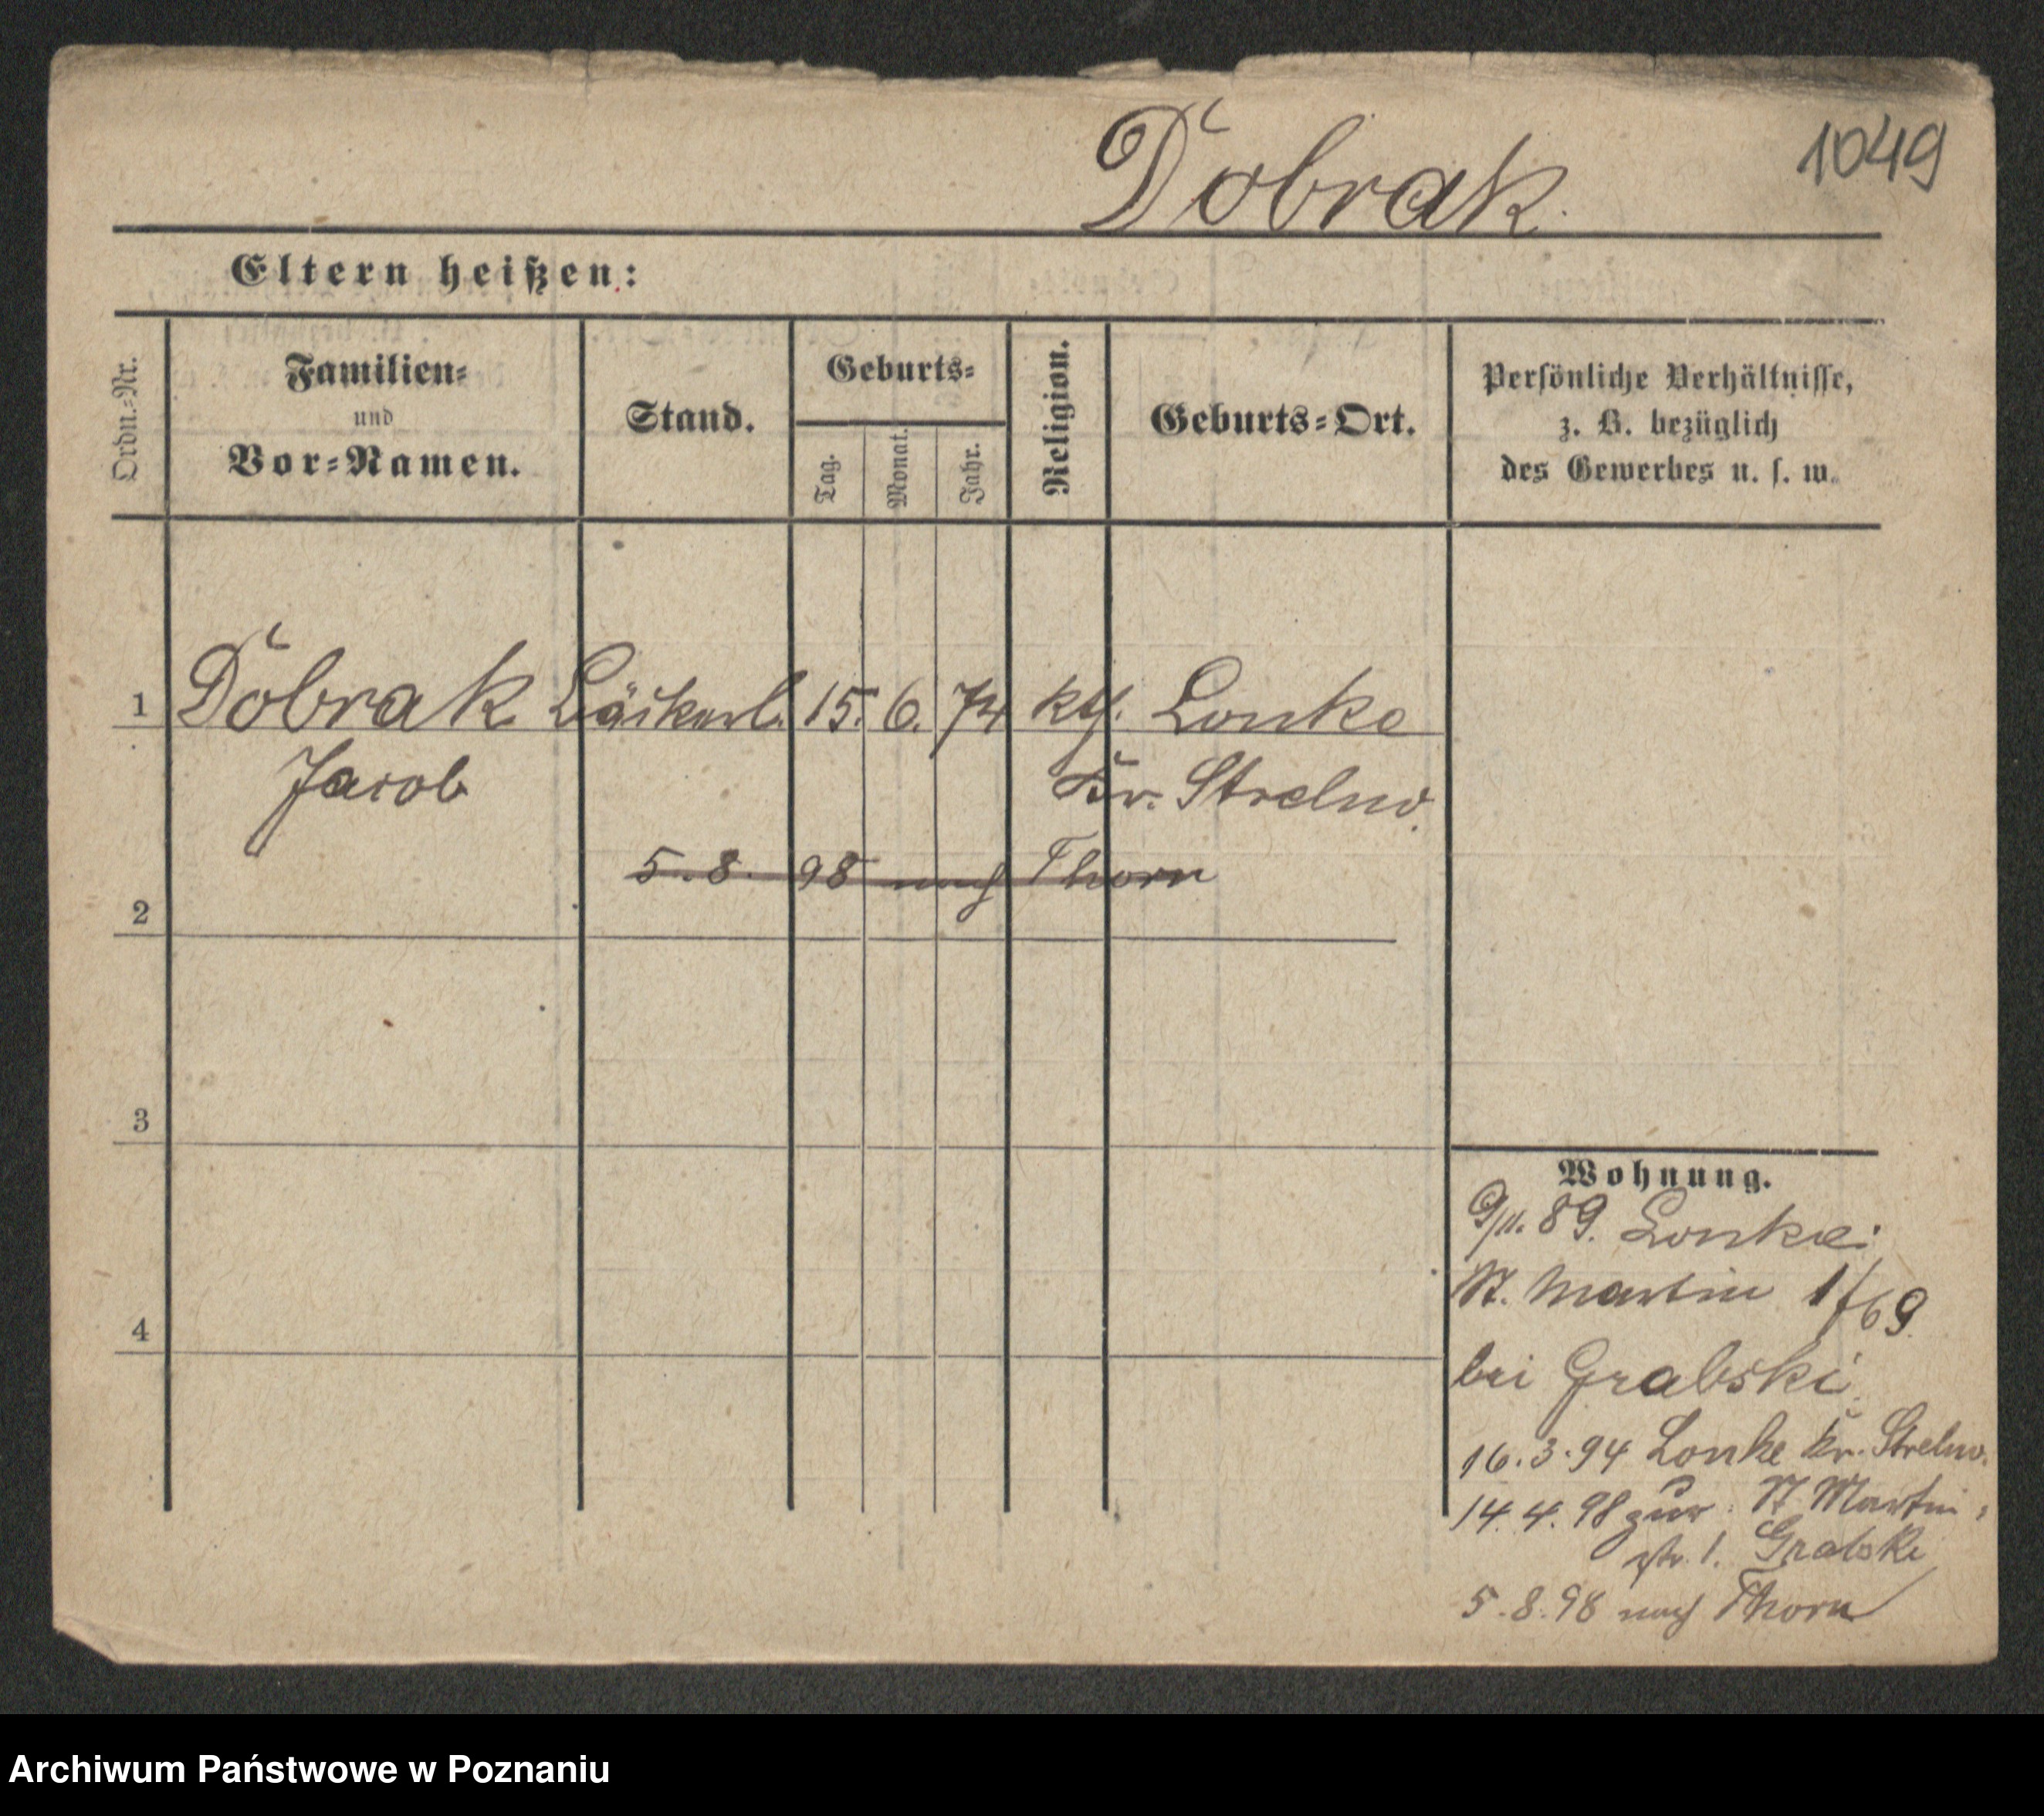 1049
Dobrak.
Eltern heißen:
Ordn.-Nr.
Familien-
und
Vor-Namen.
Stand.
Geburts-
Tag.
Monat.
Jahr.
Religion.
Geburts-Ort.
Persönliche Verhältnisse,
z. B. bezüglich
des Gewerbes u. s. w.
1 Dobrak Bäckerl. 15. 6. 74 kth. Lonke
Jacob Kr. Strelno.
5.8. 98 nach Thorn
2
3
4
Wohnung.
9/11. 89. Lonke:
St. Martin 1/69.
bei Grabski.
16.3.94 Lonke Kr. Strelno.
14.4.98 zur. St Martin-
str. 1. Grabski
5.8.98 nach Thorn
Archiwum Państwowe w Poznaniu